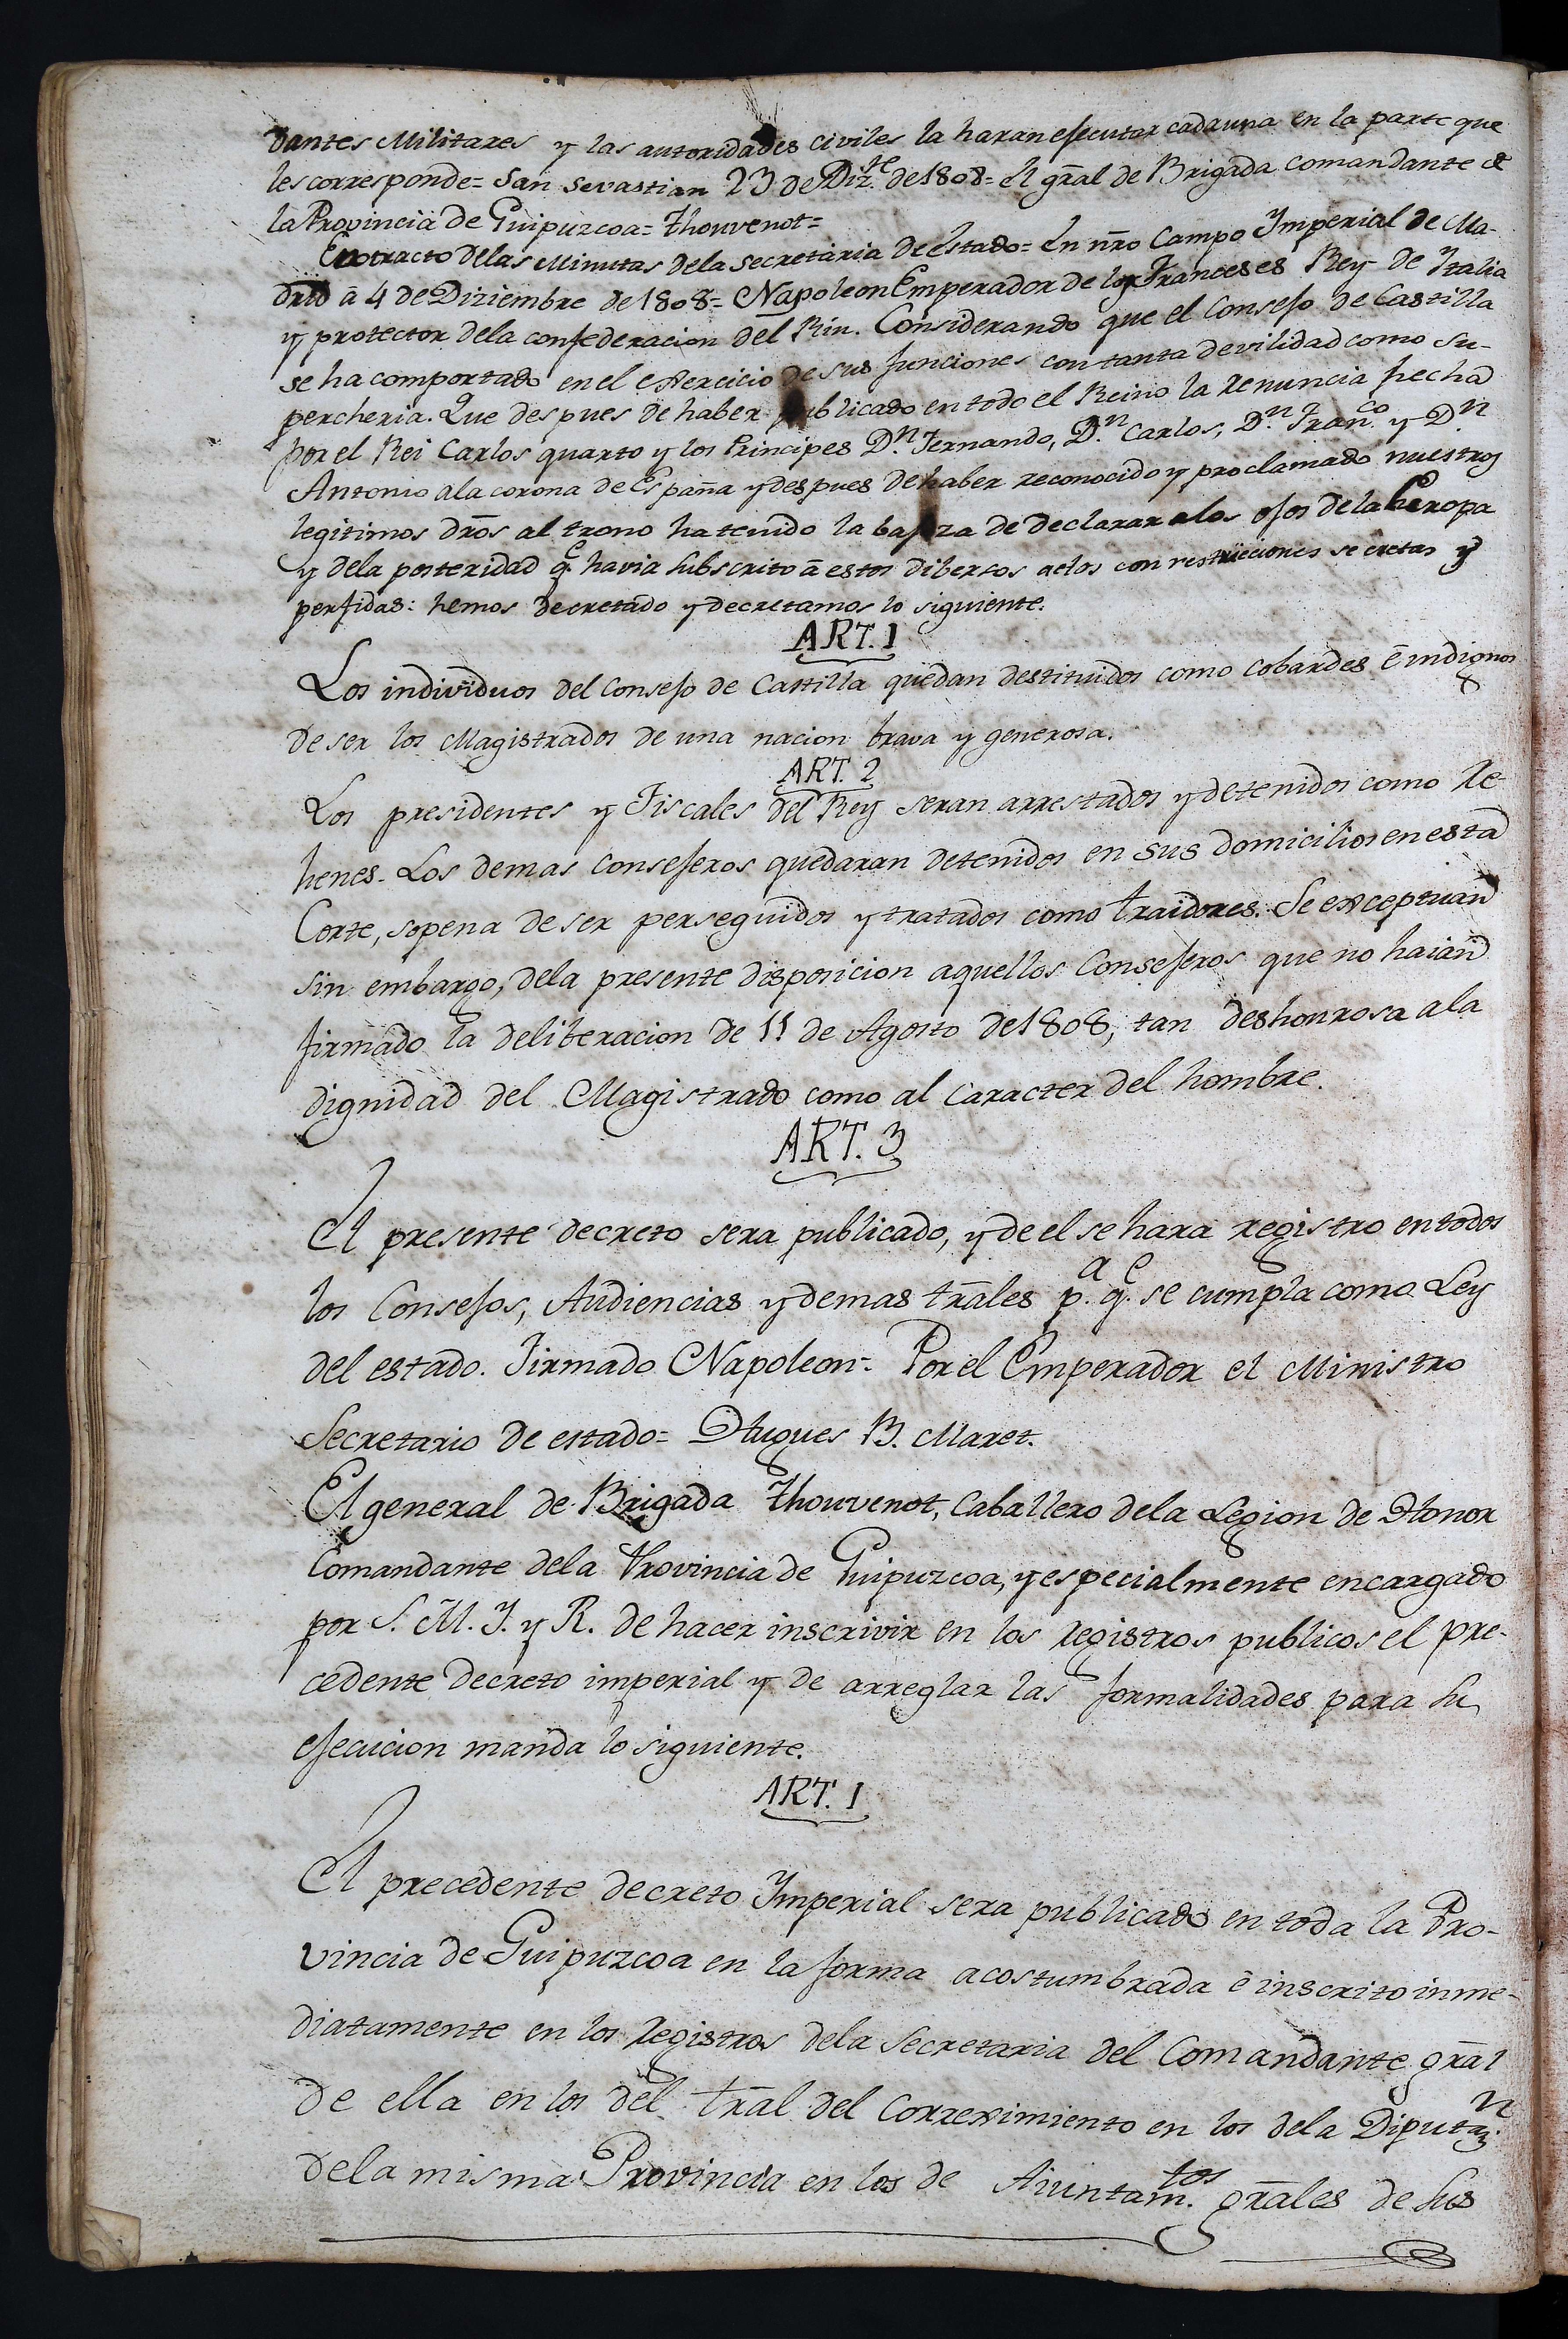 dantes Militares y las autoridades civiles la haran ejecutar cada una en la parte que
les corresponde= San Sevastian 23 de Diz.te de 1808= el grāl de Brigada comandante de
la Provincia de Guipuzcoa= Thouvenot=
Extracto de las Minutas de la Secretaria de Estado= En nr̄o Campo Ymperial de Ma-
drid ā 4 de Diziembre de 1808= Napoleon Emperador de los Franceses Rey de Italia
y protector de la confederacion del Rin. Considerando que el Consejo de Castilla
se ha comportado en el exercicio de sus funciones con tanta devilidad como su-
percheria. Que despues de haber publicado en todo el Reino la renuncia hecha
por el Rei Carlos quarto y los Principes D.n Fernando, D.n Carlos, D.n Fran.co y D.n
Antonio a la corona de España y despues de haber reconocido y proclamado nuestros
legitimos dr̄os al trono ha tenido la bajeza de declarar a los ojos de la Europa
y de la posteridad q.e havia subscrito ā estos diberços actos con restricciones secretas y
perfidas: hemos decretado y decretamos lo siguiente.
ART. 1
Los individuos del Consejo de Castilla quedan destituidos como cobardes ē indignos
de ser los Magistrados de una nacion brava y generosa.
ART. 2
Los presidentes y Fiscales del Rey seran arrestados y detenidos como Re
henes. Los demas consejeros quedaran detenidos en sus domicilios en esta
Corte, sopena de ser perseguidos y tratados como traidores. Se exceptuan
sin embargo, de la presente disposicion aquellos Consejeros que no haian
firmado la deliberacion de 11 de Agosto de 1808, tan deshonrosa a la
dignidad del Magistrado como al caracter del hombre.
ART. 3
El presente decreto sera publicado, y de el se hara registro en todos
los Consejos, Audiencias y demas trāles p.a q.e se cumpla como Ley
del estado. Firmado Napoleon= Por el Emperador el Ministro
Secretario de estado= Hugues B. Maret.
El general de Brigada Thouvenot, Caballero de la Legion de Honor
Comandante de la Provincia de Guipuzcoa, y especialmente encargado
por S. M. Y. y R. de hacer inscrivir en los registros publicos el pre-
cedente decreto imperial y de arreglar las formalidades para su
ejecucion manda lo siguiente.
ART. 1
El precedente decreto Ymperial sera publicado en toda la Pro-
vincia de Guipuzcoa en la forma acostumbrada ē inscrito inme-
diatamente en los registros de la Secretaria del Comandante grāl
de ella en los del trāl del Correximiento en los de la Diputaz.n
de la misma Provincia en los de Aiuntam.tos grāles de sus